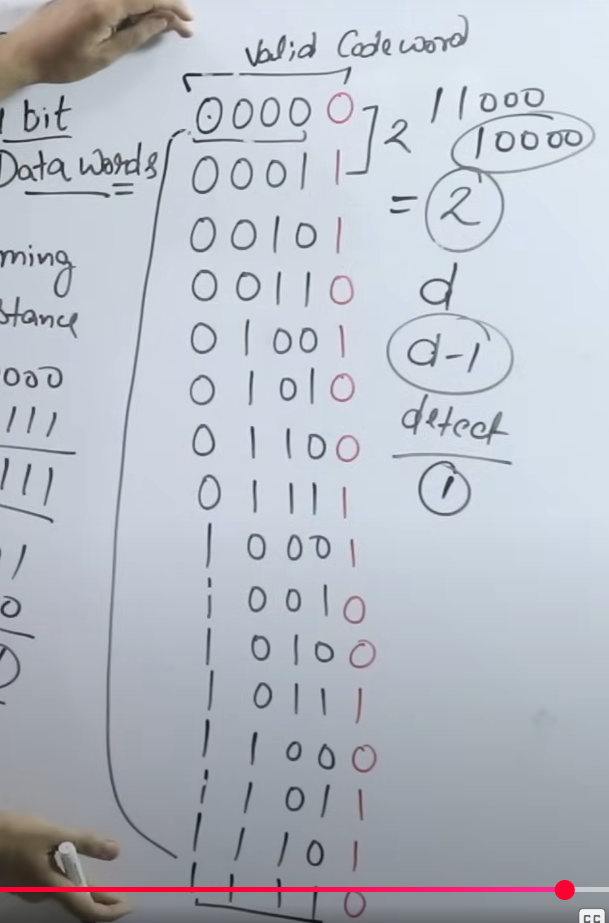 Valid Codeword
bit
Data words
ming
stance
000
111
111
1
0
0000 0
0001 1
0010 1
0011 0
0100 1
0101 0
0110 0
0111 1
1000 1
1001 0
1010 0
1011 1
1100 0
1101 1
1110 1
1111 0
2
11000
10000
= 2
d
d-1
detect
1
CC